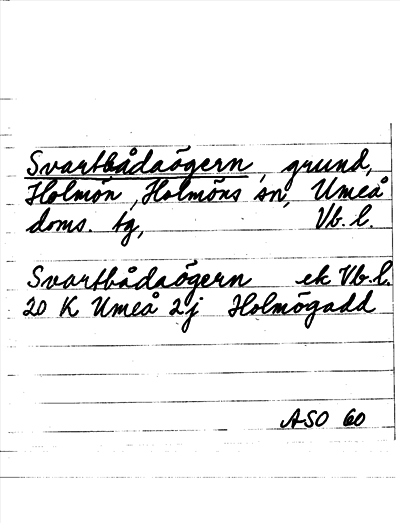 Svartbådaögern, grund,
Holmön, Holmöns sn, Umeå
doms. tg, Vb. l.
Svartbådaögern ek Vb. l.
20 K Umeå 2j Holmögadd
ASO 60